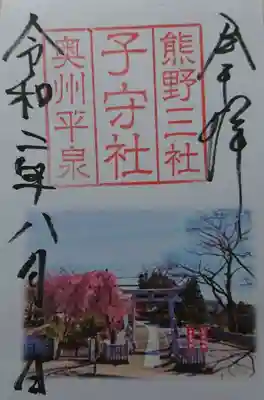 奉拝
熊野三社
子守社
奥州平泉
令和二年八月 日